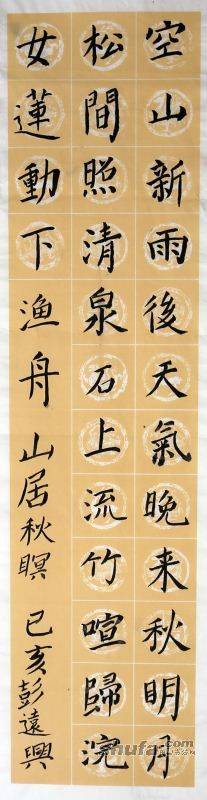 空山新雨後天氣晚来秋明月
松間照清泉石上流竹喧歸浣
女蓮動下漁舟 山居秋暝 己亥彭遠興